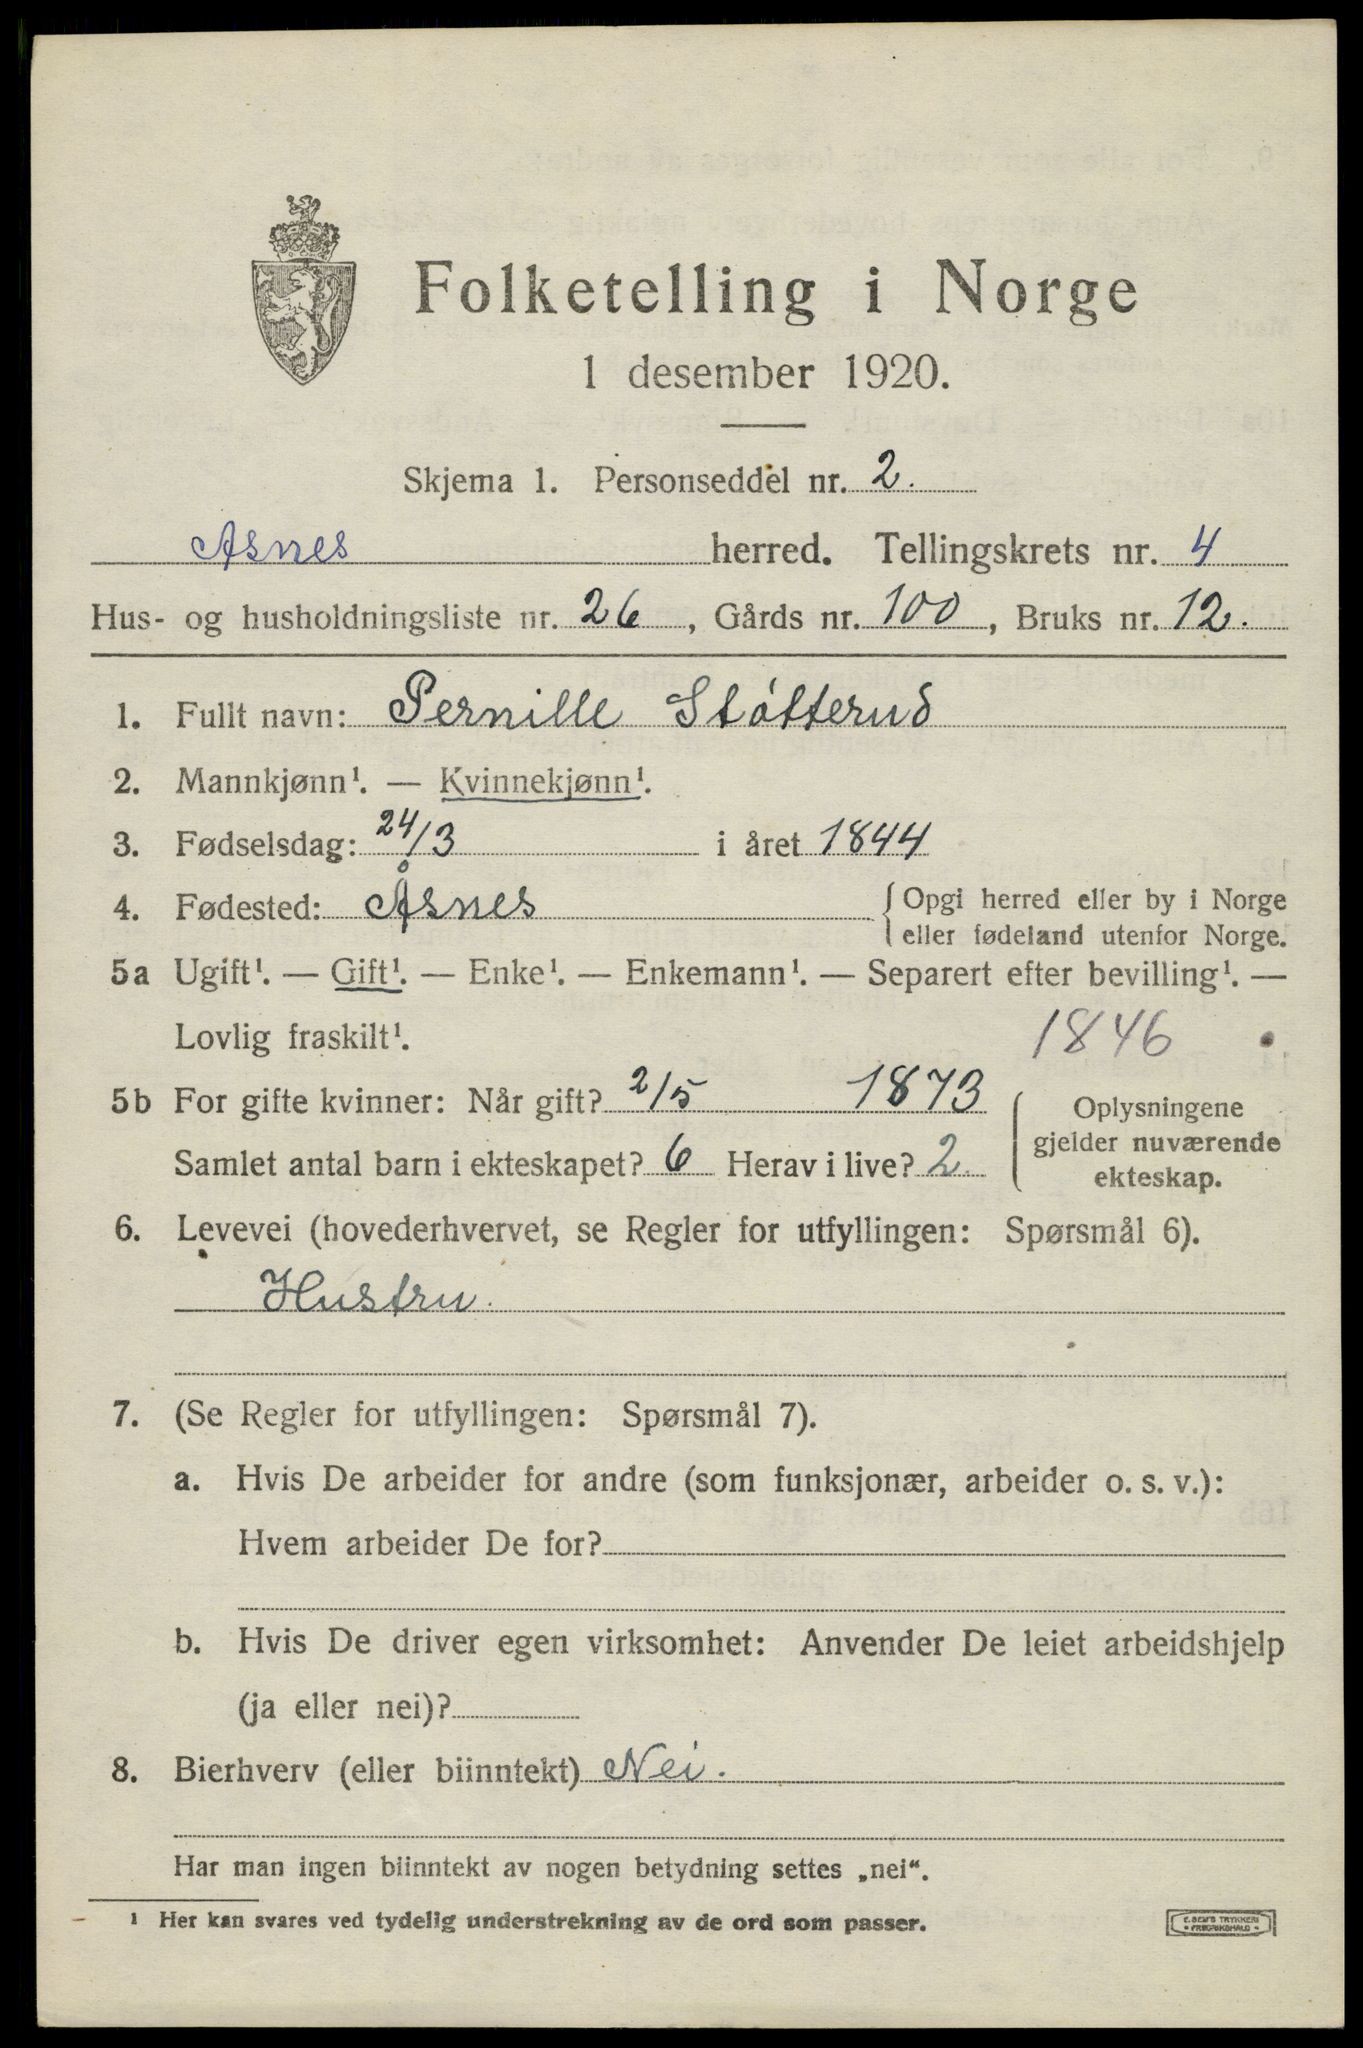 Folketelling i Norge
1 desember 1920.
Skjema 1. Personseddel nr. 2.
Åsnes herred. Tellingskrets nr. 4
Hus- og husholdningsliste nr. 26, Gårds nr. 100, Bruks nr. 12.
1. Fullt navn: Pernille Støtterud
2. Mannkjønn¹. — Kvinnekjønn¹.
3. Fødselsdag: 24/3 i året 1844
4. Fødested: Åsnes { Opgi herred eller by i Norge
eller fødeland utenfor Norge.
5a Ugift¹. — Gift¹. — Enke¹. — Enkemann¹. — Separert efter bevilling¹. —
Lovlig fraskilt¹. 1846
5b For gifte kvinner: Når gift? 2/5 1873
Samlet antal barn i ekteskapet? 6 Herav i live? 2
Oplysningene
gjelder nuværende
ekteskap.
6. Levevei (hovederhvervet, se Regler for utfyllingen: Spørsmål 6).
Hustru.
7. (Se Regler for utfyllingen: Spørsmål 7).
a. Hvis De arbeider for andre (som funksjonær, arbeider o. s. v.):
Hvem arbeider De for?
b. Hvis De driver egen virksomhet: Anvender De leiet arbeidshjelp
(ja eller nei)?
8. Bierhverv (eller biinntekt) Nei.
Har man ingen biinntekt av nogen betydning settes „nei“.
¹ Her kan svares ved tydelig understrekning av de ord som passer.
E. SEM'S TRYKKERI
FREDRIKSHALD